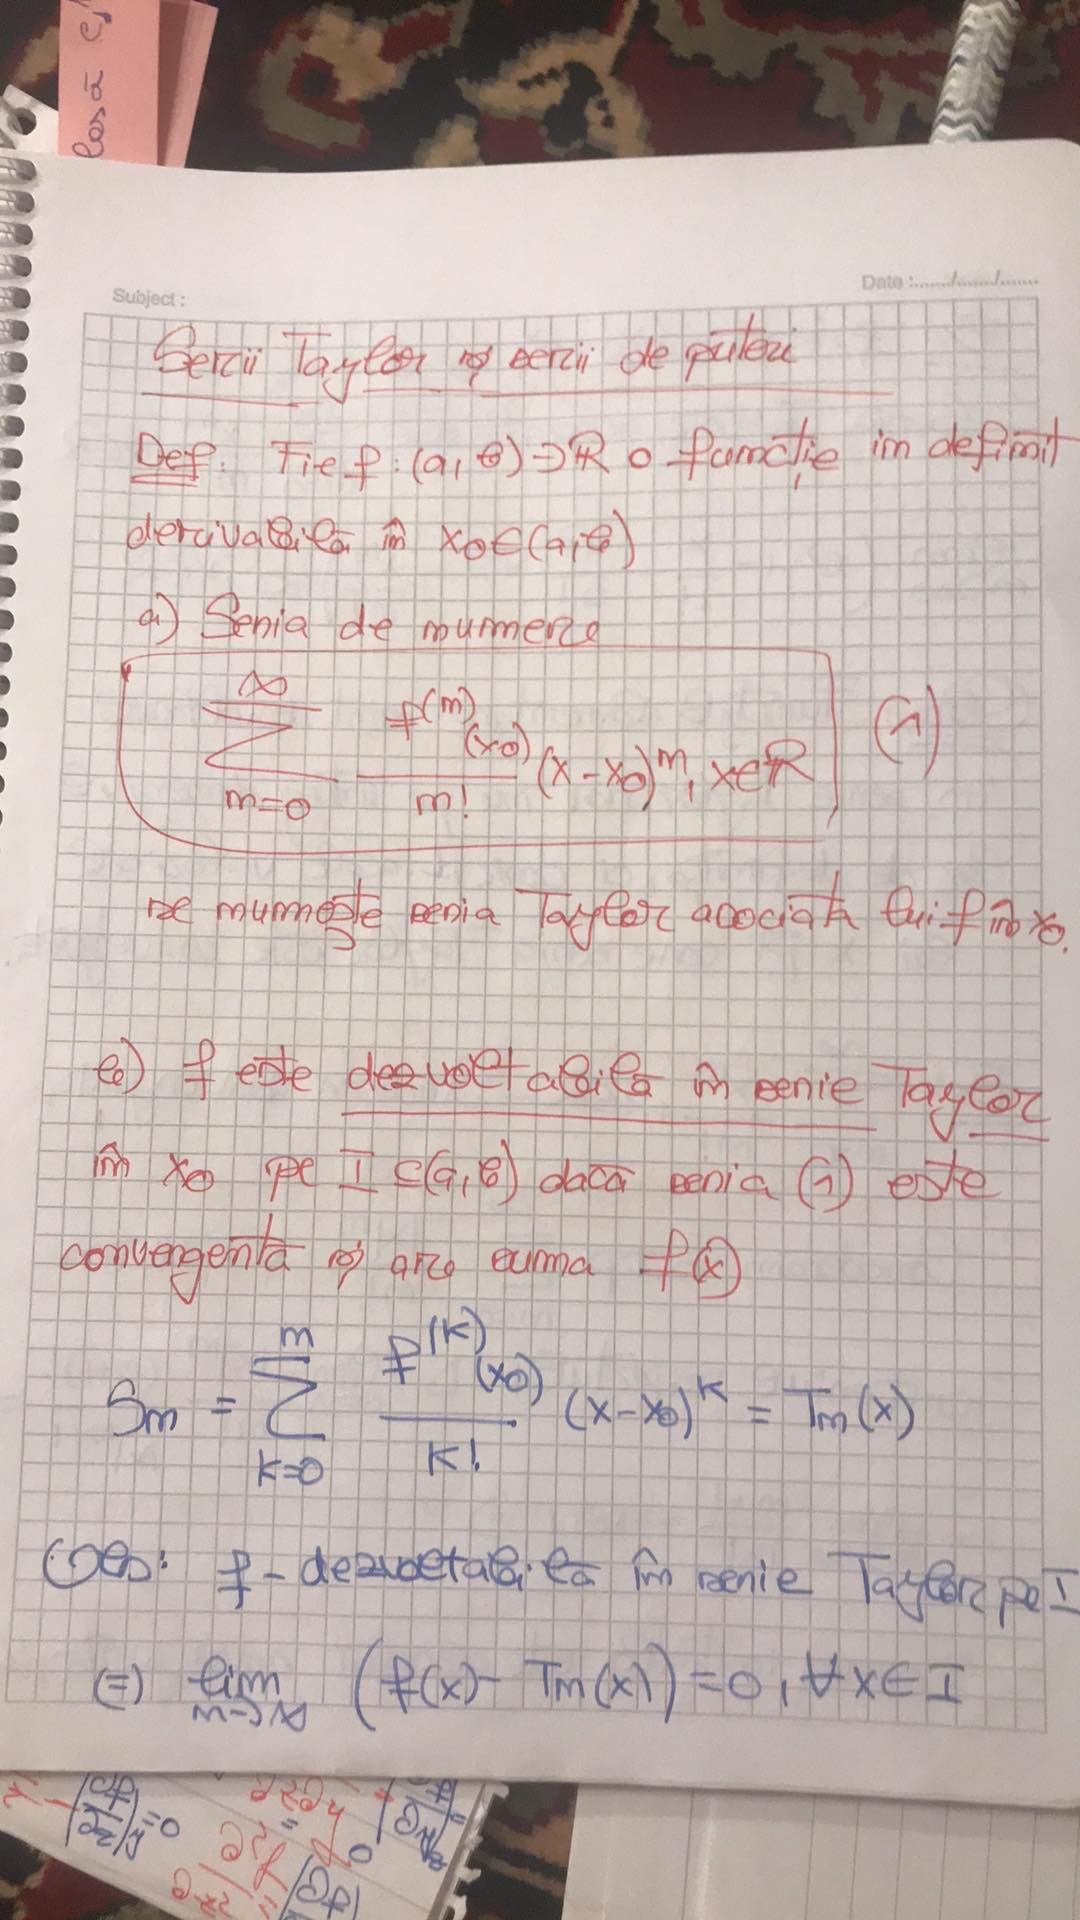 losă ej
Subject :
Data :....../....../......
Serii Taylor și serii de puteri
Def: Fie f: (a, b) → ℝ o funcție indefinit
derivabilă în x₀ ∈ (a, b)
a) Seria de numere
∞
∑ f⁽ⁿ⁾(x₀) / n! (x - x₀)ⁿ, x ∈ ℝ (1)
n=0
se numește seria Taylor asociată lui f în x₀.
b) f este dezvoltabilă în serie Taylor
în x₀ pe I ⊆ (a, b) dacă seria (1) este
convergentă și are suma f(x)
n
Sn = ∑ f⁽ᵏ⁾(x₀) / k! (x - x₀)ᵏ = Tn(x)
k=0
Obs: f - dezvoltabilă în serie Taylor pe I
(=) lim n→∞ (f(x) - Tn(x)) = 0, ∀ x ∈ I